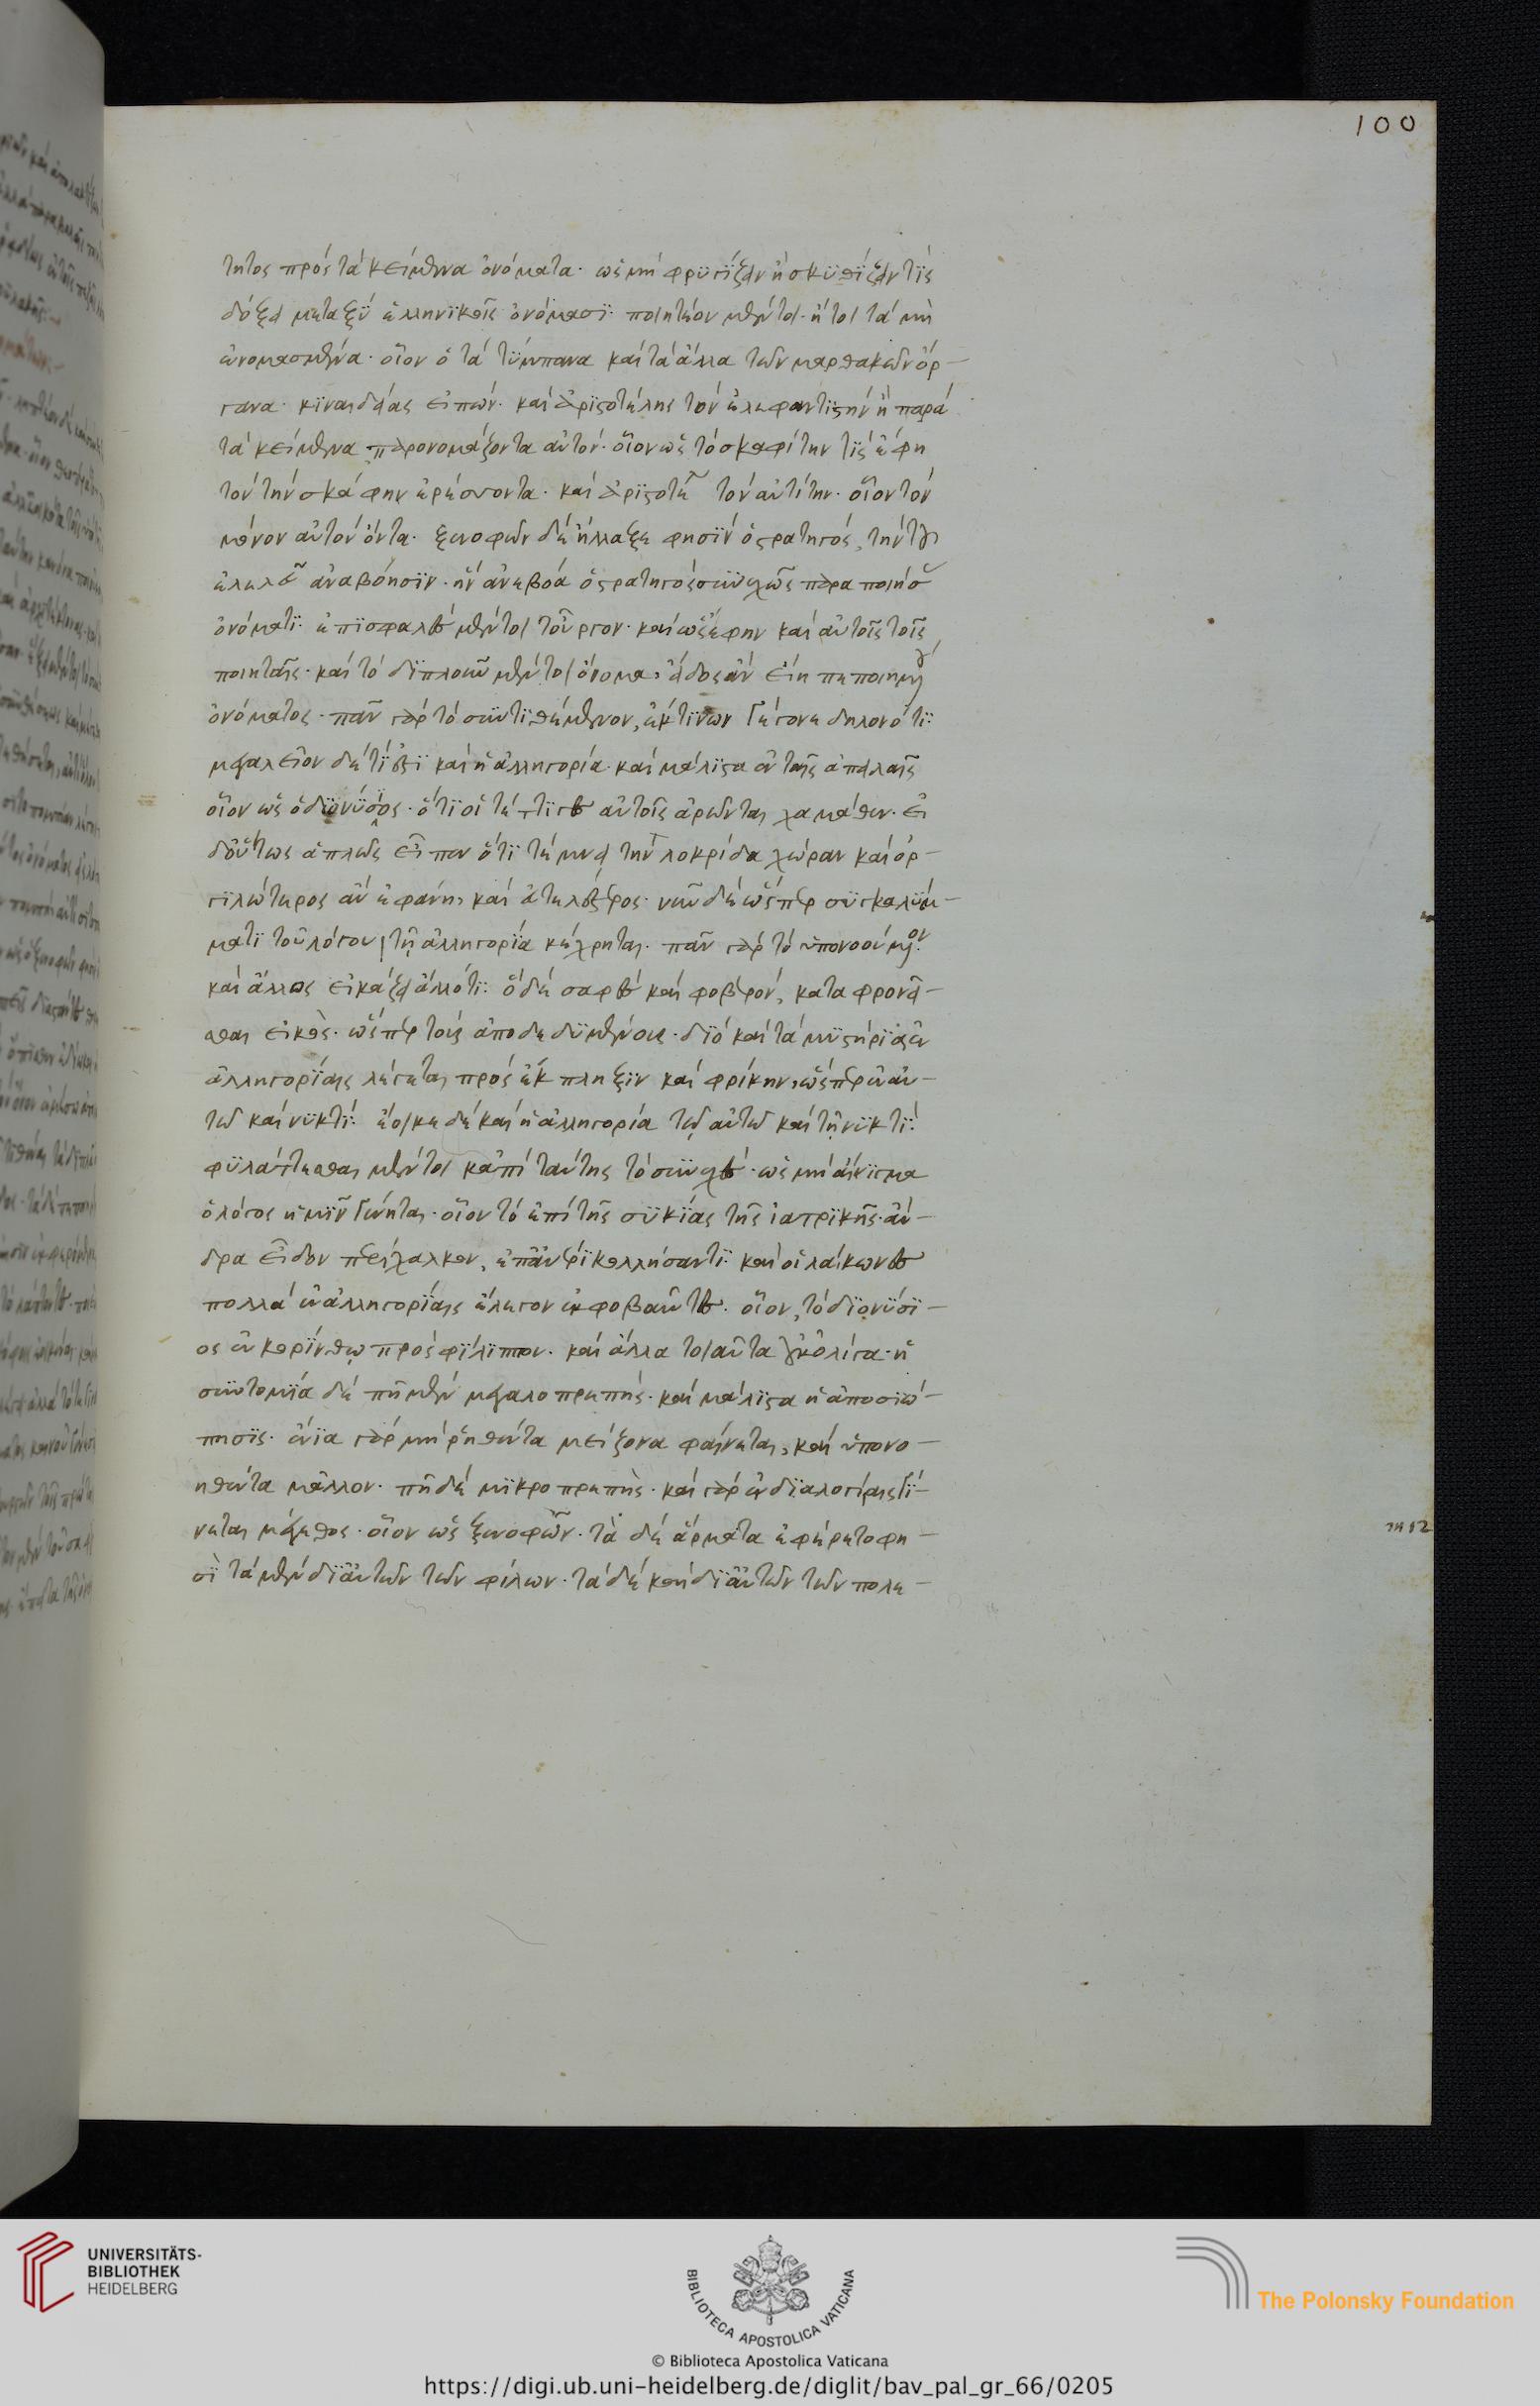 100
τητος πρὸς τὰ κείμενα ὀνόματα· ὡς μὴ φρυγίζειν ἢ σκυθίζειν τίς
δόξει μεταξὺ ἑλληνικοῖς ὀνόμασι· ποιητέον μέντοι· ἤτοι τὰ μὴ
ὠνομασμένα· οἷον ὁ τὰ τύμπανα καὶ τὰ ἄλλα τῶν μαλθακῶν ὄρ-
γανα· κιναιδίας εἰπών· καὶ ἀριστοτέλης τὸν ἐλεφαντιστήν· ἢ παρὰ
τὰ κείμενα παρονομάζοντα αὐτόν· οἷον ὡς τὸ σκαφίτην τίς ἔφη
τὸν τὴν σκάφην ἐρέσσοντα· καὶ ἀριστοτέλης τὸν αὐτίτην· οἷον τὸν
μόνον αὐτὸν ὄντα· ξενοφῶν δὲ ἤλλαξε φησὶν ὁ στρατηγός, τὴν τοῦ
ἐλελεῦ ἀναβόησιν· ἣν ἀνεβόα ὁ στρατηγὸς συνεχῶς παραποιήσας
ὀνόματι· ἐπισφαλὲς μέντοι τοὖργον· καὶ ὡς ἔφην καὶ αὐτοῖς τοῖς
ποιηταῖς· καὶ τὸ διπλοῦν μέντοι ὄνομα, εἶδος ἂν εἴη πεποιημένου
ὀνόματος· πᾶν γὰρ τὸ συντιθέμενον, ἔκ τινων γέγονε δηλονότι·
μεγαλεῖον δέ τί ἐστι καὶ ἡ ἀλληγορία· καὶ μάλιστα ἐν ταῖς ἀπειλαῖς
οἷον ὡς ὁ διονύσιος· ὅτι οἱ τέττιγες αὐτοῖς ἄρωνται χαμᾶθεν· εἰ
δ' οὕτως ἁπλῶς εἶπεν ὅτι τέμνει τὴν λοκρίδα χώραν καὶ ὀρ-
γιλώτερος ἂν ἐφάνη, καὶ ἀτελέστερος· νῦν δὲ ὥσπερ συγκαλύμ-
ματι τοῦ λόγου, τῇ ἀλληγορία κέχρηται· πᾶν γὰρ τὸ ὑπονοούμενον·
καὶ ἄλλος εἰκάζει ἄλλό τι· ὃ δὲ σαφὲς καὶ φοβερόν, καταφρονεῖ-
σθαι εἰκὸς· ὥσπερ τοὺς ἀποδεδυμένους· διὸ καὶ τὰ μυστήρια ἐν
ἀλληγορίαις λέγεται πρὸς ἔκπληξιν καὶ φρίκην, ὥσπερ ἐν αὐ-
τῶ καὶ νυκτί· ἔοικε δὲ καὶ ἡ ἀλληγορία τῷ αὐτῶ καὶ τῇ νυκτί·
φυλάττεσθαι μέντοι κἀπὶ ταύτης τὸ συνεχές· ὡς μὴ αἴνιγμα
ὁ λόγος ἡμῖν γένηται· οἷον τὸ ἐπὶ τῆς συκίας τῆς ἰατρικῆς· ἄν-
δρα εἶδον πυρὶ χαλκόν, ἐπ' ἀνέρι κολλήσαντι· καὶ οἱ λάκωνες
πολλὰ ἐν ἀλληγορίαις ἔλεγον ἐκφοβοῦντες· οἷον, τὸ διονύσι-
ος ἐν κορίνθῳ πρὸς φίλιππον· καὶ ἄλλα τοιαῦτα οὐκ ὀλίγα· ἡ
συντομία δὲ πῆ μὲν μεγαλοπρεπής· καὶ μάλιστα ἡ ἀποσιώ-
πησις· ἔνια γὰρ μὴ ῥηθέντα μείζονα φαίνεται, καὶ ὑπονο-
ηθέντα μᾶλλον· πῆ δὲ μικροπρεπὴς· καὶ γὰρ ἐν διαλογίαις γί-
νεται μέγεθος· οἷον ὡς ξενοφῶν· τὰ δὲ ἅρματα ἐφέρετο φη-
σὶ τὰ μὲν δι' αὐτῶν τῶν φίλων· τὰ δὲ καὶ δι' αὐτῶν τῶν πολε-
UNIVERSITÄTS-
BIBLIOTHEK
HEIDELBERG
BIBLIOTECA APOSTOLICA VATICANA
© Biblioteca Apostolica Vaticana
The Polonsky Foundation
https://digi.ub.uni-heidelberg.de/diglit/bav_pal_gr_66/0205